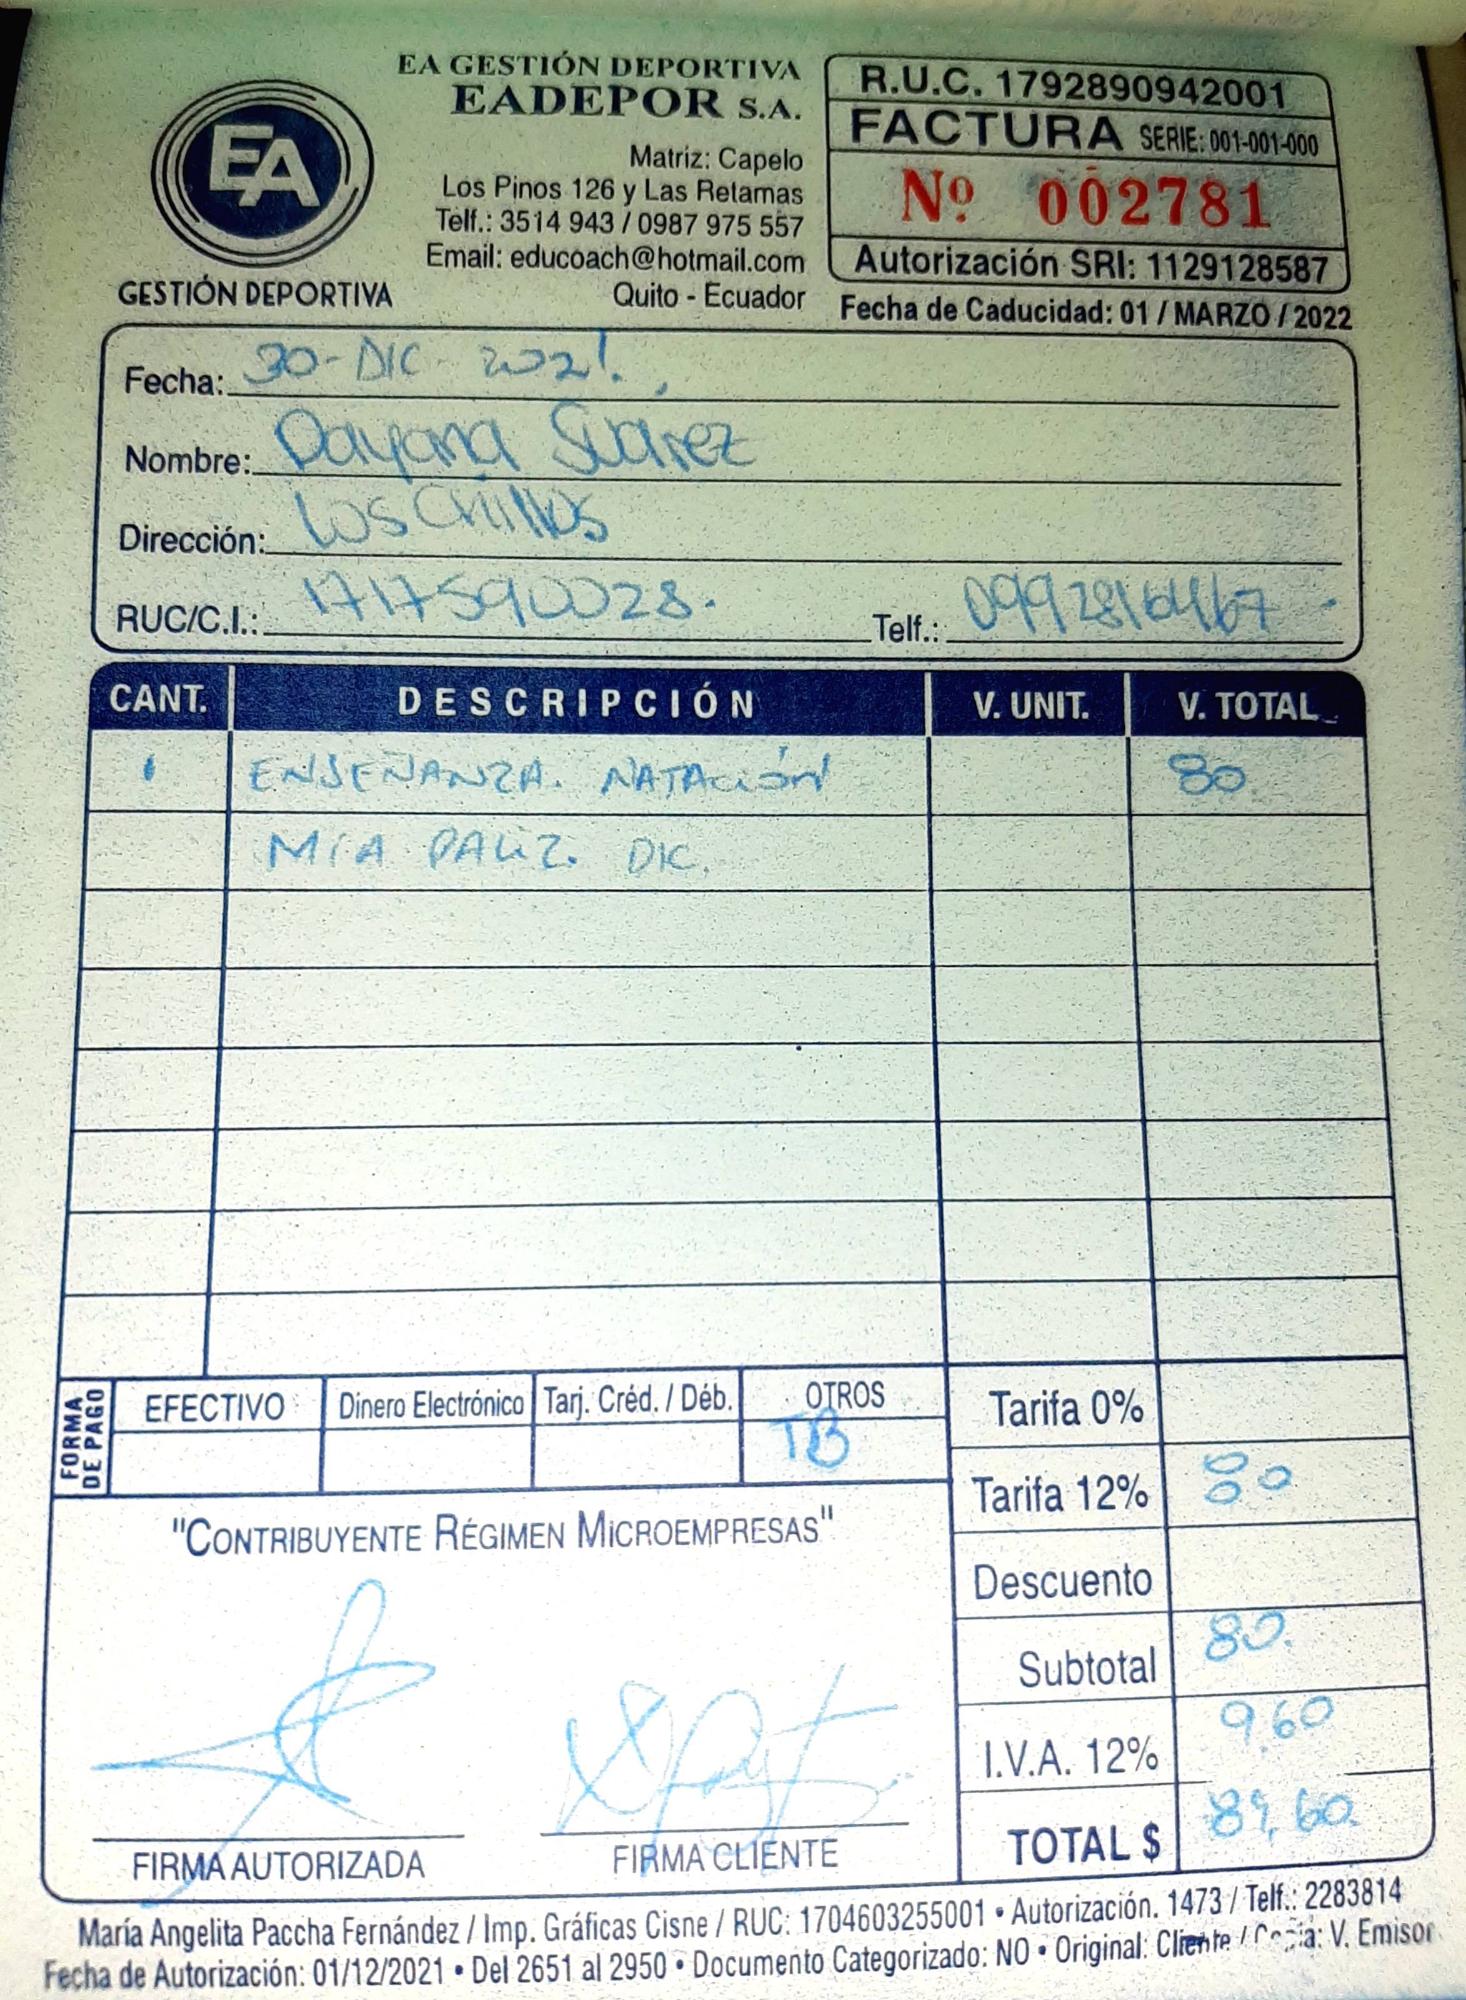 EA
GESTIÓN DEPORTIVA
EA GESTIÓN DEPORTIVA
EADEPOR S.A.
Matriz: Capelo
Los Pinos 126 y Las Retamas
Telf.: 3514 943 / 0987 975 557
Email: educoach@hotmail.com
Quito - Ecuador
R.U.C. 1792890942001
FACTURA SERIE: 001-001-000
Nº 002781
Autorización SRI: 1129128587
Fecha de Caducidad: 01 / MARZO / 2022
Fecha: 30-DIC-2021.
Nombre: Dayana Suárez
Dirección: Los Chillos
RUC/C.I.: 1717590028. Telf.:
CANT. DESCRIPCIÓN V. UNIT. V. TOTAL
1 ENSEÑANZA. NATACIÓN 80
MIA DIC.
FORMA DE PAGO
EFECTIVO Dinero Electrónico Tarj. Créd. / Déb. OTROS
TB
Tarifa 0%
Tarifa 12% 80
Descuento
Subtotal 80.
I.V.A. 12% 9,60
TOTAL $ 89,60.
"CONTRIBUYENTE RÉGIMEN MICROEMPRESAS"
FIRMA AUTORIZADA FIRMA CLIENTE
María Angelita Paccha Fernández / Imp. Gráficas Cisne / RUC: 1704603255001 • Autorización. 1473 / Telf.: 2283814
Fecha de Autorización: 01/12/2021 • Del 2651 al 2950 • Documento Categorizado: NO • Original: Cliente / Copia: V. Emisor